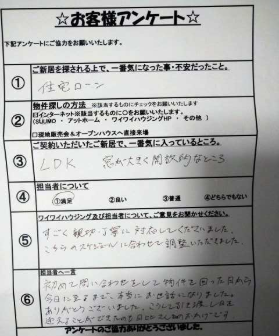 ☆お客様アンケート☆
下記アンケートにご協力をお願いいたします。
ご新居を探される上で、一番気になった事・不安だったこと。
①
住宅ローン
物件探しの方法 ※該当するものにチェックをお願いいたします
②
☑インターネット※該当するものに○をお願いいたします
(SUUMO ・ アットホーム ・ ワイワイハウジングHP ・ その他 )
□現地販売会&オープンハウスへ直接来場
ご契約いただいたご新居で、一番気に入っているところ。
③
LDK 窓が大きく開放的なところ
担当者について
④
①満足 ②良い ③普通 ④どちらでもない
ワイワイハウジング及び担当者について、ご意見をお聞かせください。
⑤
すごく親切、丁寧に対応してくださいました。
こちらのスケジュールに合わせて調整いただきました。
担当者へ一言
⑥
初めて問い合わせをして物件を回った日から
今日に至るまで、本当にお世話になりました。
ありがとうございました。
アンケートのご協力ありがとうございました。